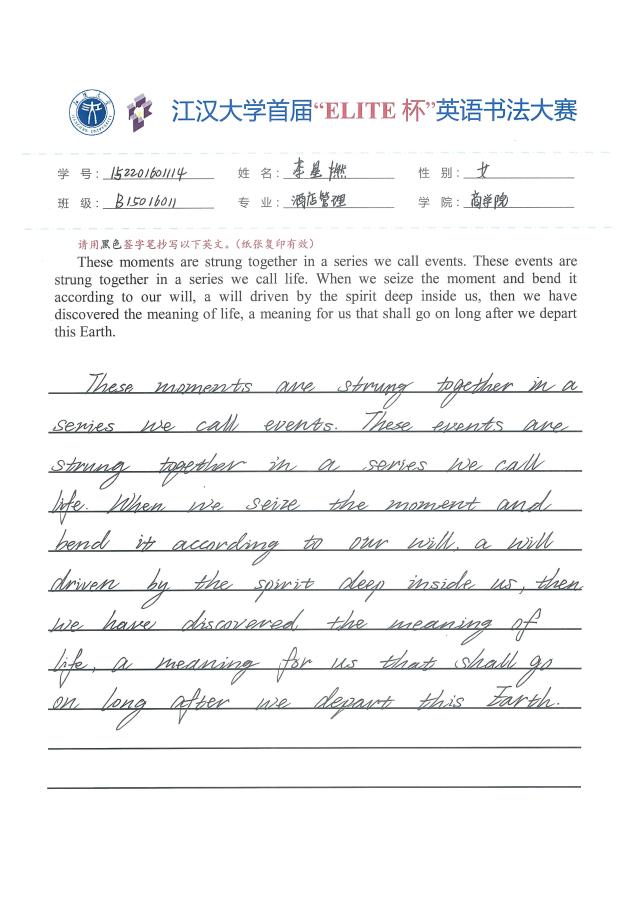 江汉大学首届“ELITE 杯”英语书法大赛
学 号: 152201601114 姓 名: 李星 性 别: 女
班 级: B15016011 专 业: 酒店管理 学 院: 商学院
请用黑色签字笔抄写以下英文。(纸张复印有效)
These moments are strung together in a series we call events. These events are
strung together in a series we call life. When we seize the moment and bend it
according to our will, a will driven by the spirit deep inside us, then we have
discovered the meaning of life, a meaning for us that shall go on long after we depart
this Earth.
These moments are strung together in a
series we call events. These events are
strung together in a series we call
life. When we seize the moment and
bend it according to our will, a will
driven by the spirit deep inside us, then
we have discovered the meaning of
life, a meaning for us that shall go
on long after we depart this Earth.